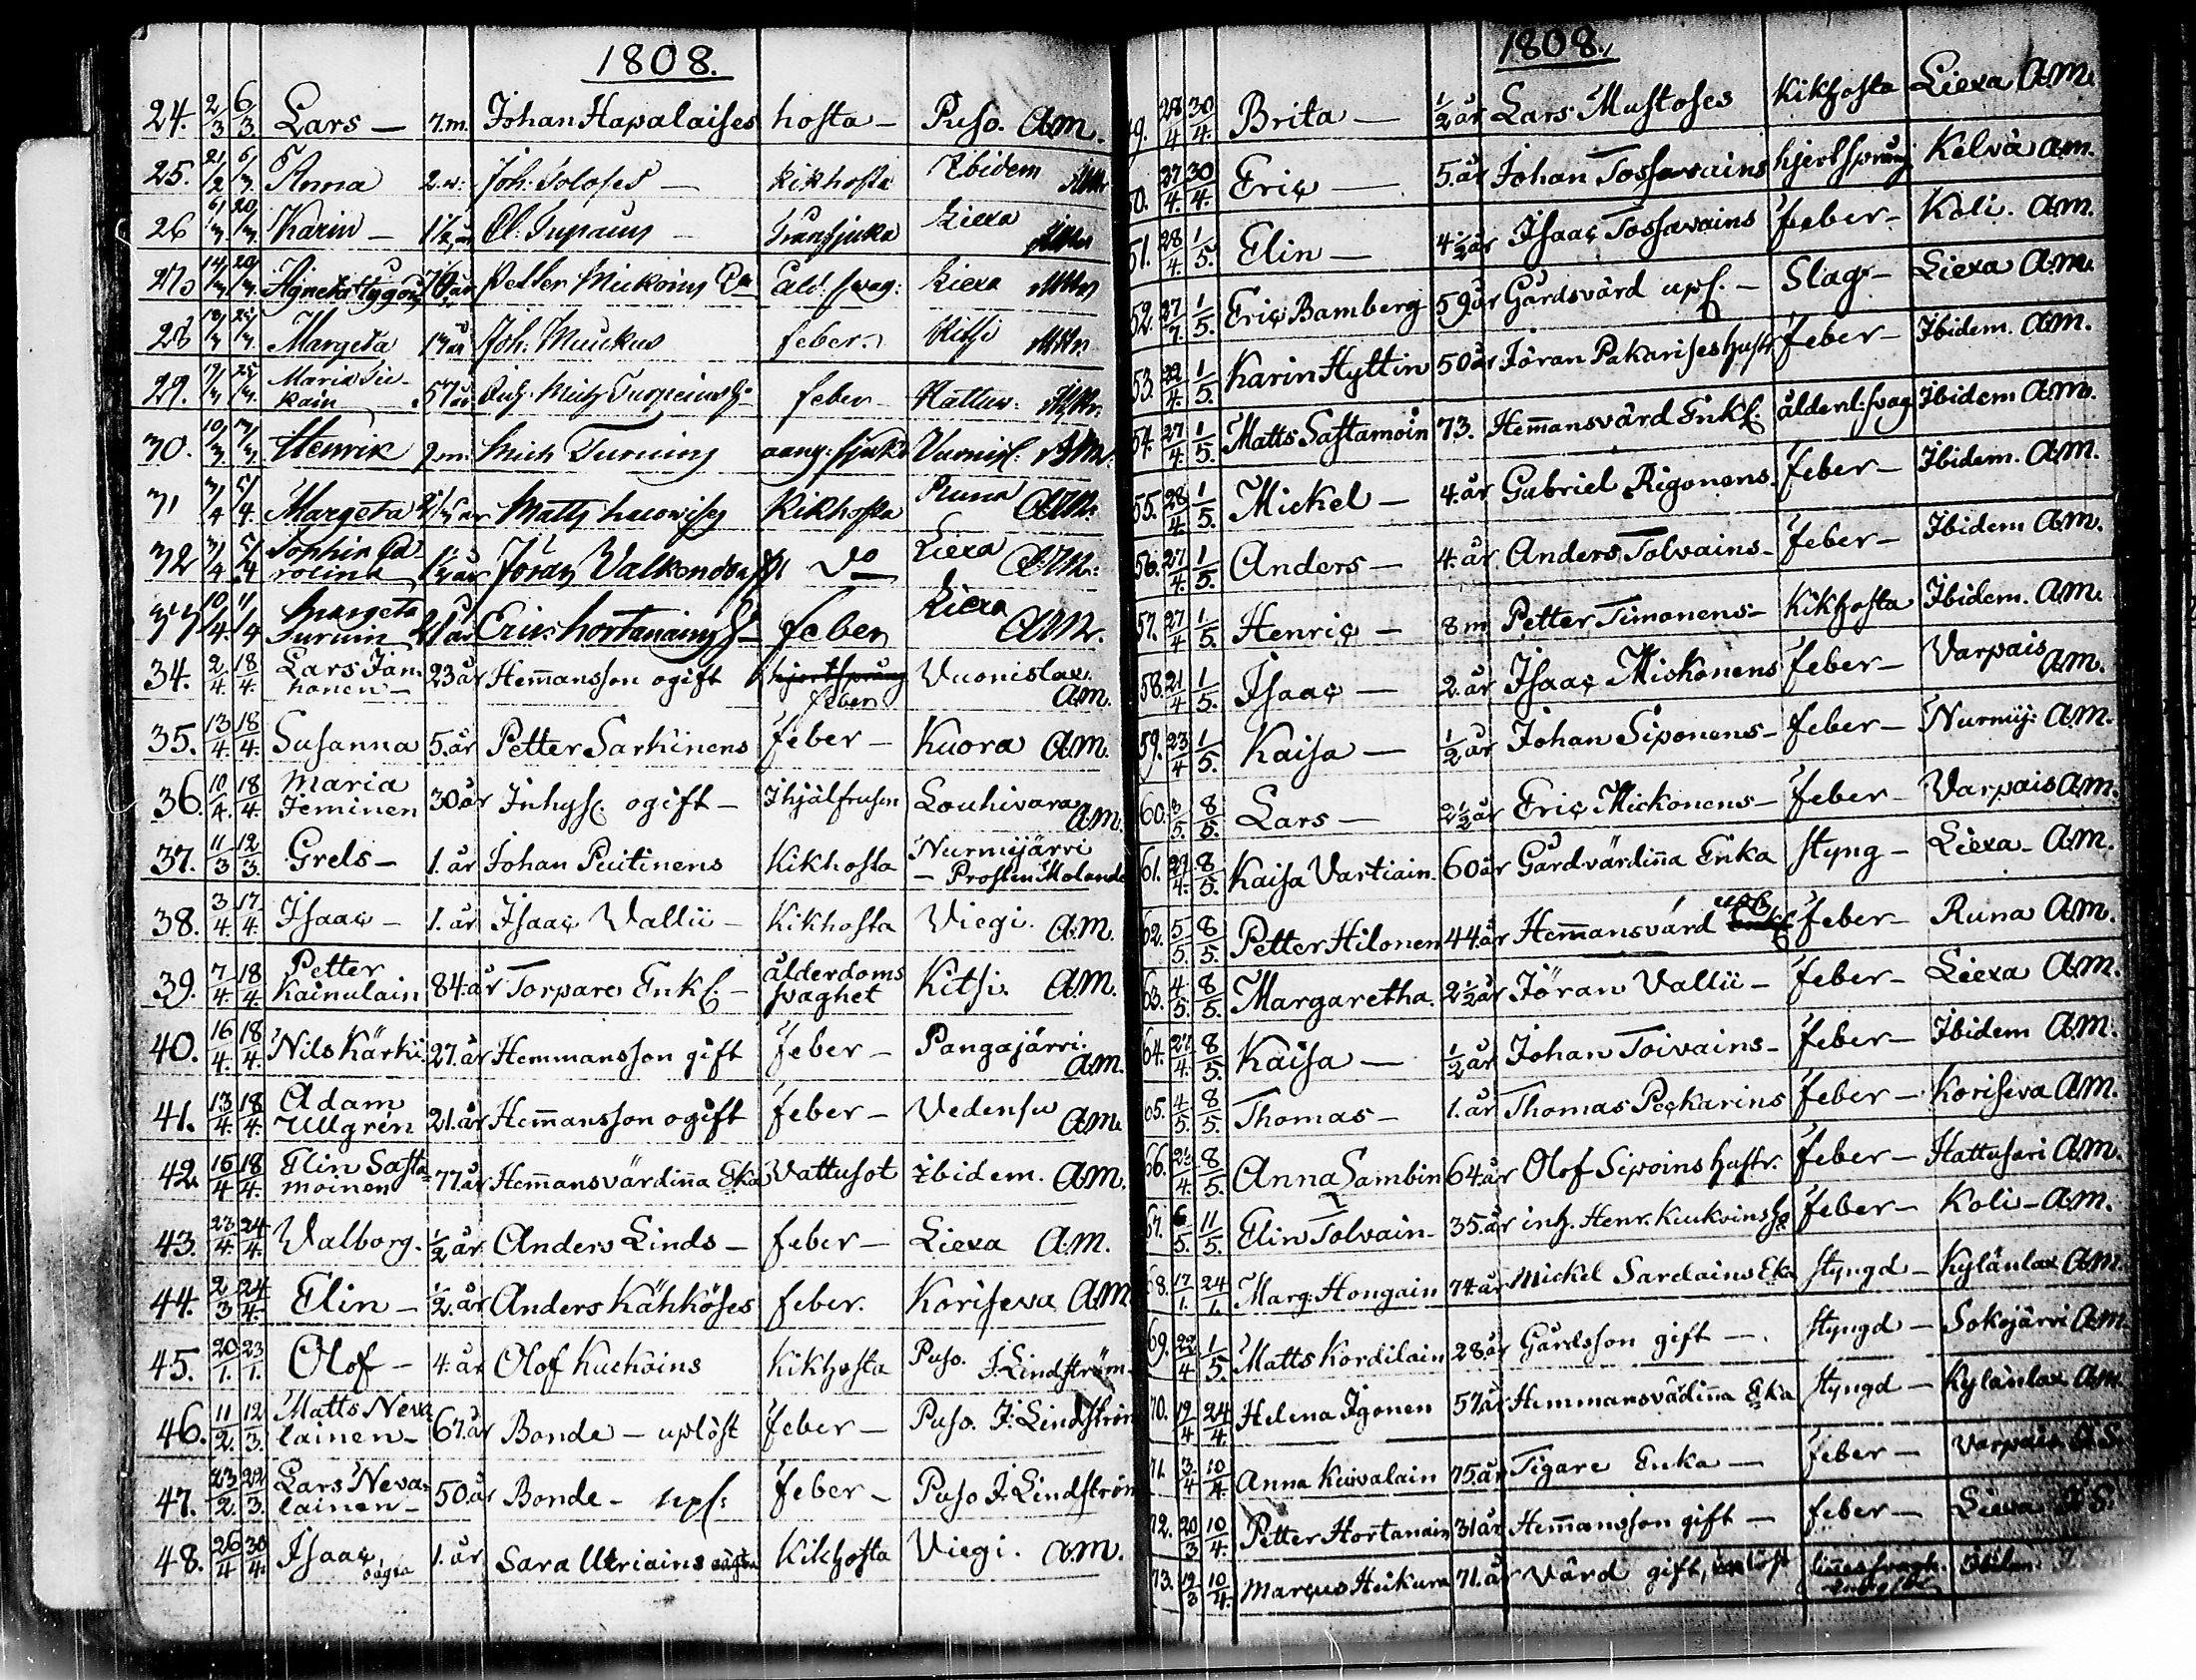 1808.
24. 2/3 6/3. Lars — 7.m. Johan Hapalaises hosta — Puso. A.M.
25. 21/2 6/3. Anna 2.w. Joh: Toloses — Kikhosta Ibidem
26 6/3 20/3. Karin — 1½ år Ol: — Liexa
27 14/3 20/3. Agneta 76 år Petter Mickoins Ålds svag: Liexa
28 Margeta Joh. Muukus feber. Kitsi
29. Maria 57 år feber — Hattus:
30. Henrik 2.m. Mich Turuins Vuonisl:
31 3/4 5/4. Margeta Matts Kikhosta Runa A.M.
32 3/4 5/4 Sophia Ca
rolina Jöran Valkendorfs Do Liexa A.M.
33 10/4. 11/4 Margeta
Turuin Eric Hortanains feber Liexa A.M.
34. 2/4. 18/4. Lars Jan-
honen — 23 år Hem̄ansson ogift hjertsprång
feber Vuonislax. A.M.
35. 13/4. 18/4. Susanna 5. år Petter Sarkinens feber — Kuora A.M.
36. 10/4. 18/4. Maria
Ieminen 30 år Inhys. ogift — Ihjälfrusen Louhivara A.M.
37. 11/3 12/3. Grels — 1. år Johan Puitinens Kikhosta Nurmijärvi
— Prosten Molande
38. 3/4. 17/4. Isaac — 1. år Isaac Vallii — Kikhosta Viegi. A.M.
39. 7/4. 18/4 Petter
Kainulain 84. år Torpare Enkl. — ålderdoms
svaghet Kitsi. A.M.
40. 16/4. 18/4. Nils Kärki. 27. år Hemmansson gift feber — Pangajärvi. A.M.
41. 13/4. 18/4. Adam
Ullgrén 21. år Hem̄ansson ogift feber — Vedensu A.M.
42. 15/4 18/4. Elin Sasta=
moinen 77. år Hem̄ansvärdin̄a Eka Vattusot ibidem. A.M.
43. 23/4. 24/4. Valborg. ½ år Anders Linds — feber — Liexa A.M.
44. 2/3 24/4. Elin — ½. år Anders Kähköses feber. Koriseva A.M
45. 20/1. 23/1. Olof — 4. år Olof Kuckoins Kikhosta Puso. J. Lindström
46. 11/2. 12/3. Matts Neva
lainen — 67. år Bonde — uplöst feber — Puso. J. Lindström
47. 23/2. 22/3. Lars Neva=
lainen — 50. år Bonde — upl: feber — Puso J. Lindström
48. 26/4 30/4. Isaac, oägta 1. år Sara Utriains oägta Kikhosta Viegi. A.M.
1808.
49. 28/4 30/4. Brita — ½ år Lars Mustoses Kikhosta Liexa A.M.
50. 27/4. 30/4. Eric — 5. år Johan Tossavains hjertsprång Kelvä A.M.
51. 28/4. 1/5. Elin — 4½ år Isaac Tossavains feber — Koli. A.M.
52. 27/7. 1/5. Eric Bamberg 59. år Gårdsvärd upl. — Slag — Liexa A.M.
53. 22/4. 1/5. Karin Hyttin 50 år Jöran Pakarises hustr feber — Ibidem. A.M.
54. 27/4. 1/5. Matts Sastamoin 73. Hem̄ansvärd Enkl. ålderd: svag Ibidem A.M.
55. 28/4. 1/5. Mickel — 4. år Gabriel Rigonens. feber — Ibidem. A.M.
56. 27/4. 1/5. Anders — 4. år Anders Tolvains — feber — Ibidem A.M.
57. 27/4 1/5. Henric — 8 m Petter Timonens — Kikhosta Ibidem. A.M.
58. 21/4 1/5. Isaac — 2. år Isaac Mickonens feber — Varpais A.M.
59. 23/4 1/5. Kaisa — ½ år Johan Siponens — feber — Nurmij: A.M.
60. 3/5. 8/5. Lars — 2½ år Eric Mickonens — feber — Varpais A.M.
61. 29/4. 8/5. Kaisa Vartiain. 60 år Gårdvärdin̄a Enka styng — Liexa — A.M.
62. 5/5. 8/5. Petter Hilonen 44. år Hem̄ansvärd upl. feber — Runa A.M.
63. 4/5. 8/5. Margaretha. 2½ år Jöran Vallii — feber — Liexa A.M.
64. 27/4. 8/5. Kaisa — ½ år Johan Toivains — feber — Ibidem A.M.
65. 4/5. 8/5. Thomas — 1. år Thomas Peckarins feber — Koriseva A.M.
66. 23/4. 8/5. Anna Sambin 64. år Olof Sipoins hustr. feber — Hattusari A.M.
67. 6/5. 11/5. Elin Tolvain — 35. år inh. Henr. Kuckoins h. feber — Koli — A.M.
68. 17/1. 24/1. Marg. Hongain 74. år Mickel Sarelains Eka styngd — Kylänlax A.M.
69. 22/4 1/5. Matts Kordilain 28. år Gårdsson gift — styngd — Sokojärvi A.M.
70. 19/4 24/4. Helena Igonen 57. år Hemmansvädin̄a Eka styngd — Kylänlax A.M.
71. 3/4 10/4. Anna Kuivalain 75. år Tigare Enka — feber — Varpais.
72. 20/3 10/4. Petter Hortanain 31 år Hem̄ansson gift — feber — Liexa
73. 19/3 10/4. Marcus Heikura 71. år Värd gift,